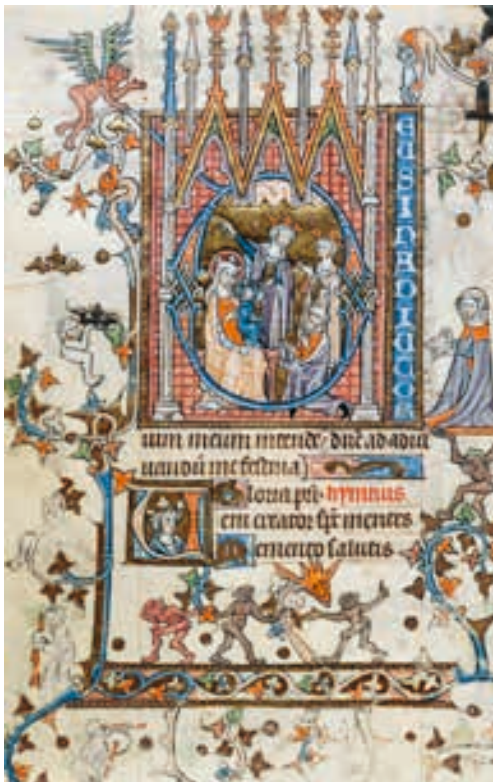 EUSINADIUTOR
ium meum intende dñe ad adiu
uandū me festina
Gloria pr̄i. hymnus
Veni creator sp̄r mentes
Memento salutis